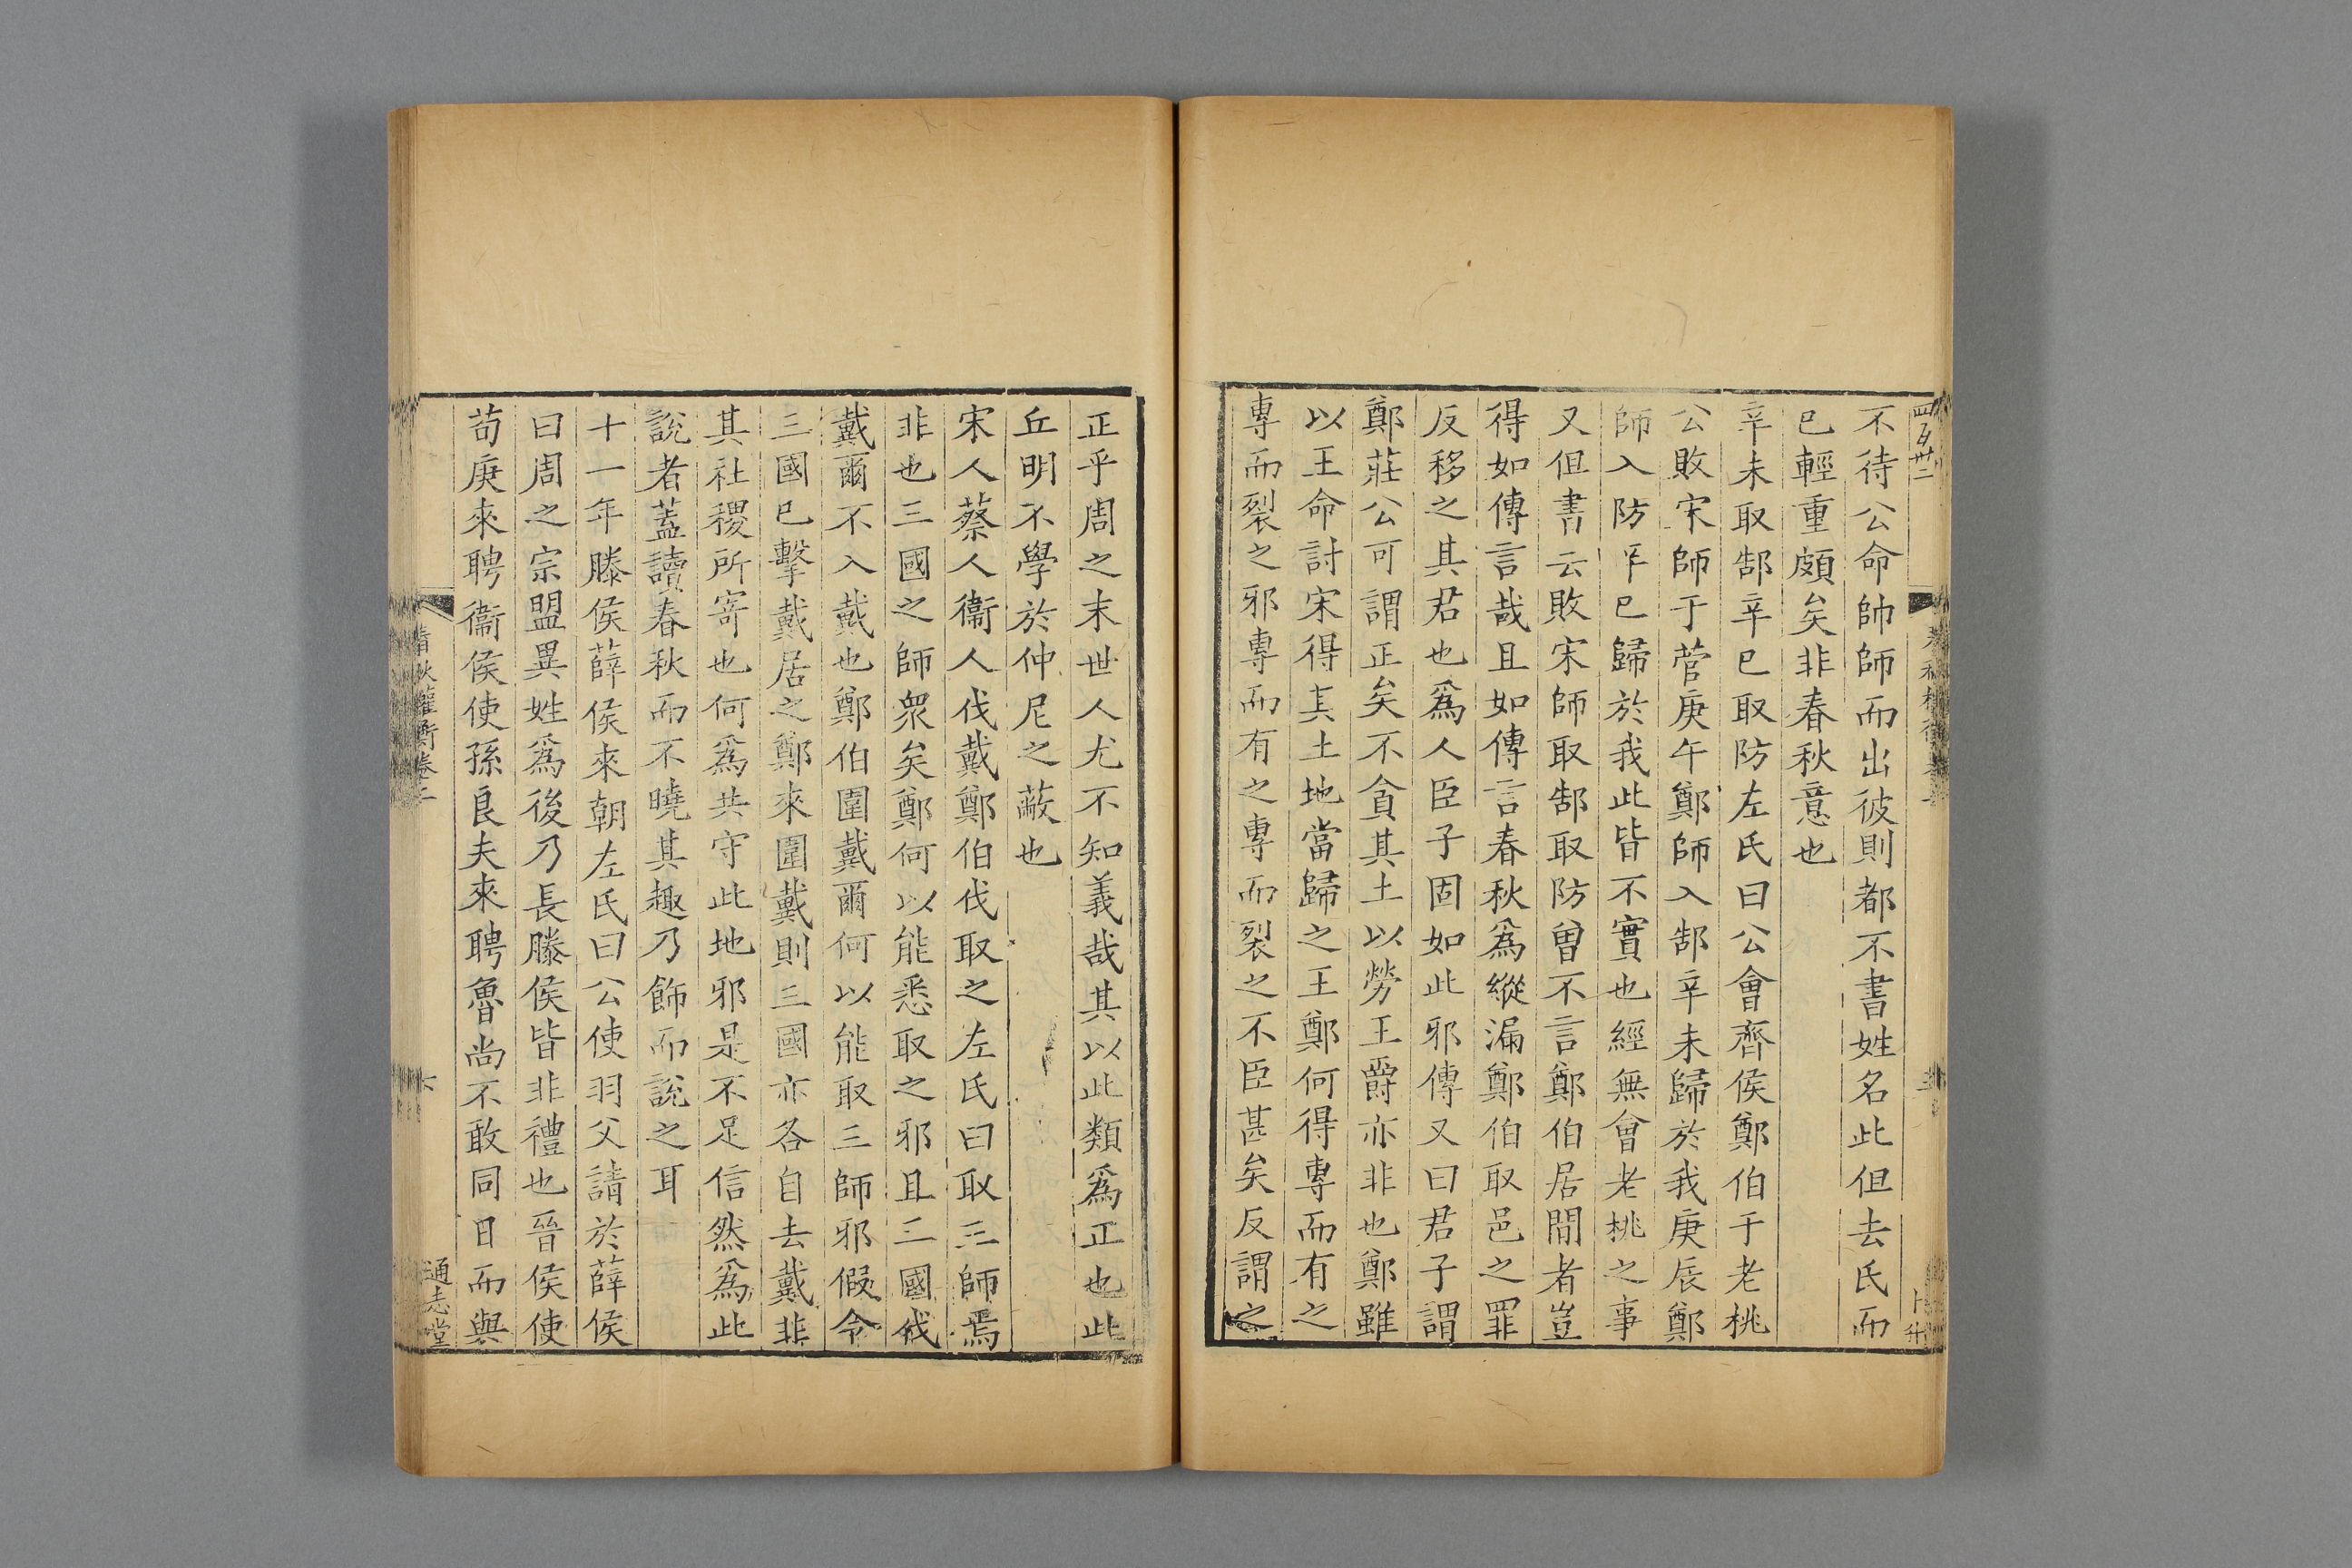 不待公命帥師而出彼則都不書姓名此但去氏而
已輕重頗矣非春秋意也
辛未取郜辛巳取防左氏曰公會齊侯鄭伯于老桃
公敗宋師于菅庚午鄭師入郜辛未歸於我庚辰鄭
師入防辛巳歸於我此皆不實也經無會老桃之事
又但書云敗宋師取郜取防曾不言鄭伯居間者豈
得如傳言哉且如傳言春秋為縱漏鄭伯取邑之罪
反移之其君也為人臣子固如此邪傳又曰君子謂
鄭莊公可謂正矣不貪其土以勞王爵亦非也鄭雖
以王命討宋得其土地當歸之王鄭何得專而有之
專而裂之邪專而有之專而裂之不臣甚矣反謂之
正乎周之末世人尤不知義哉其以此類為正也此
丘明不學於仲尼之蔽也
宋人蔡人衞人伐戴鄭伯伐取之左氏曰取三師焉
非也三國之師衆矣鄭何以能悉取之邪且三國伐
戴爾不入戴也鄭伯圍戴爾何以能取三師邪假令
三國已擊戴居之鄭來圍戴則三國亦各自去戴非
其社稷所寄也何為共守此地邪是不足信然為此
說者蓋讀春秋而不曉其趣乃飾而說之耳
十一年滕侯薛侯來朝左氏曰公使羽父請於薛侯
曰周之宗盟異姓為後乃長滕侯皆非禮也晉侯使
荀庚來聘衞侯使孫良夫來聘魯尚不敢同日而與
春秋權衡卷二
六
通志堂